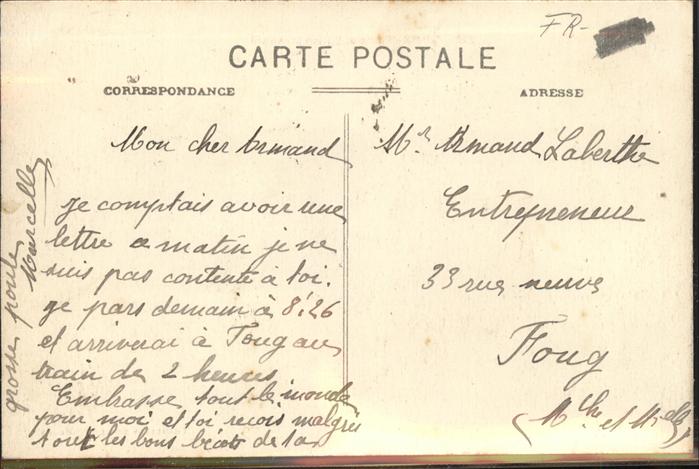 FR-
CARTE POSTALE
CORRESPONDANCE
ADRESSE
Mon cher Armand
je comptais avoir une
lettre ce matin je ne
suis pas contente à toi.
je pars demain à 8.26
et arriverai à Foug au
train de 2 heures
Embrasse tout le monde
pour moi et toi reçois malgrès
tout les bons bécots de ta
grosse poule
Marcelle
Mr Armand Laberthe
Entrepreneur
33 rue neuve
Foug
(Mthe et Mlle)